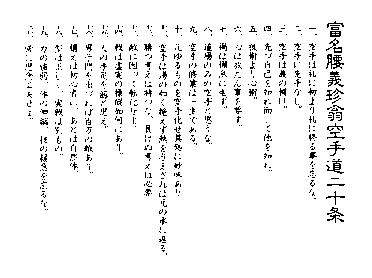 富名腰義珍翁空手道二十条
一、空手は礼に初まり礼に終る事を忘るな。
二、空手に先手なし。
三、空手は義の補け。
四、先づ自己を知れ而して他を知れ。
五、技術より心術。
六、心は放たん事を要す。
七、禍は懈怠に生ず。
八、道場のみの空手と思うな。
九、空手の修業は一生である。
十、凡ゆるものを空手化せ其処に妙味あり。
十一、空手は湯の如く絶えず熱を与えざれば元の水に返る。
十二、勝つ考えは持つな、負けぬ考えは必要。
十三、敵に因って転化せよ。
十四、戦は虚実の操縦如何にあり。
十五、人の手足を剣と思え。
十六、男子門を出づれば百万の敵あり。
十七、構えは初心者に、あとは自然体。
十八、形は正しく、実戦は別もの。
十九、力の強弱、体の伸縮、技の緩急を忘るな。
二十、常に思念工夫せよ。